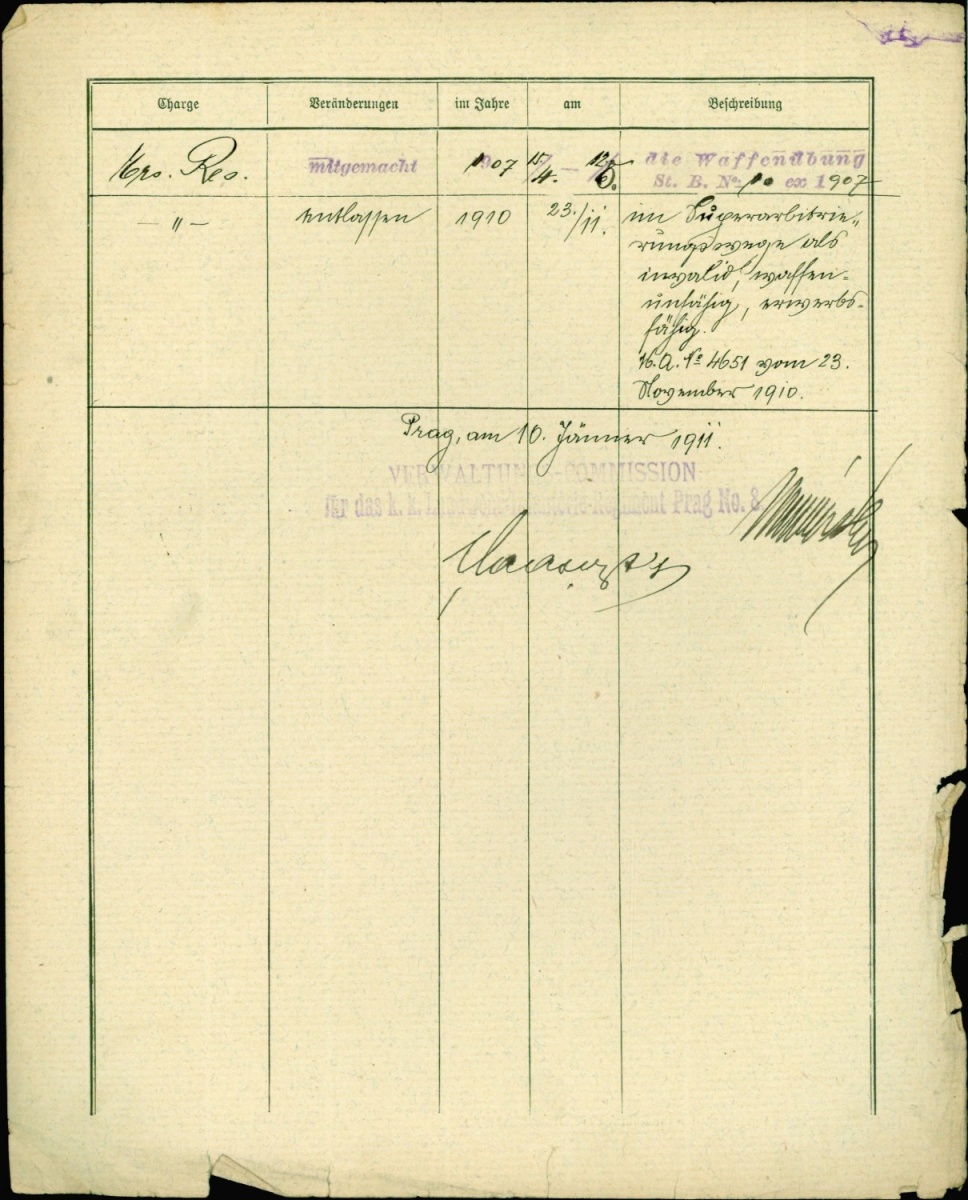 Charge Veränderungen im Jahre am Beschreibung
Res. mitgemacht 1907 15/4. – 12/6. die Waffenübung
St. B. No. 10 ex 1907
– „ – entlassen 1910 23./11. im Superarbitrie-
rungswege als
invalid, waffen-
unfähig, erwerbs-
fähig.
No 4651 vom 23.
November 1910.
Prag, am 10. Jänner 1911.
VERWALTUNGS-COMMISSION
für das k. k. Landwehr-Infanterie-Regiment Prag No. 8.